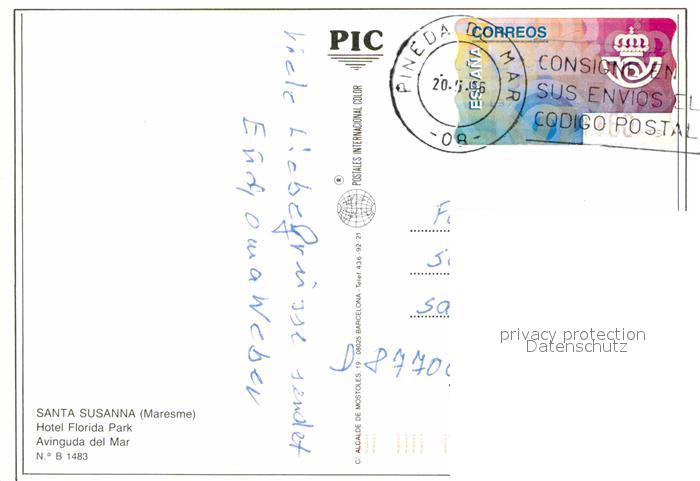 Viele Liebe grüsse sendet
Oma Weber
PIC
® POSTALES INTERNACIONAL COLOR
C/. ALCALDE DE MOSTOLES, 19 - 08025 BARCELONA - Telef. 436-92-21
PINEDA DE MAR
-08-
CORREOS
ESPAÑA
CONSIGNE EN
SUS ENVIOS EL
CODIGO POSTAL
D 8770
privacy protection
Datenschutz
SANTA SUSANNA (Maresme)
Hotel Florida Park
Avinguda del Mar
N.° B 1483